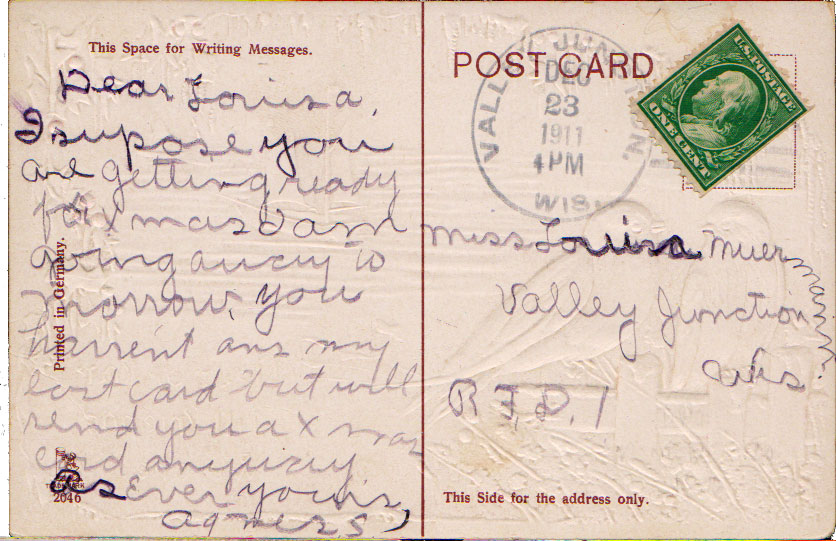 This Space for Writing Messages.
Dear Louisa,
I supose you
are getting ready
for x mas I am
going away to
morrow, you
harrent ans my
last card but will
send you a X mas
card anyway
as Ever yours,
Agness
Printed in Germany.
TRADE MARK
2046
POST CARD
VALLEY JUNCTION,
DEC
23
1911
4 PM
WIS.
U.S. POSTAGE
ONE CENT
Miss Louisa Muer
mann
Valley Junction
Wis.
R.F.D. 1
This Side for the address only.